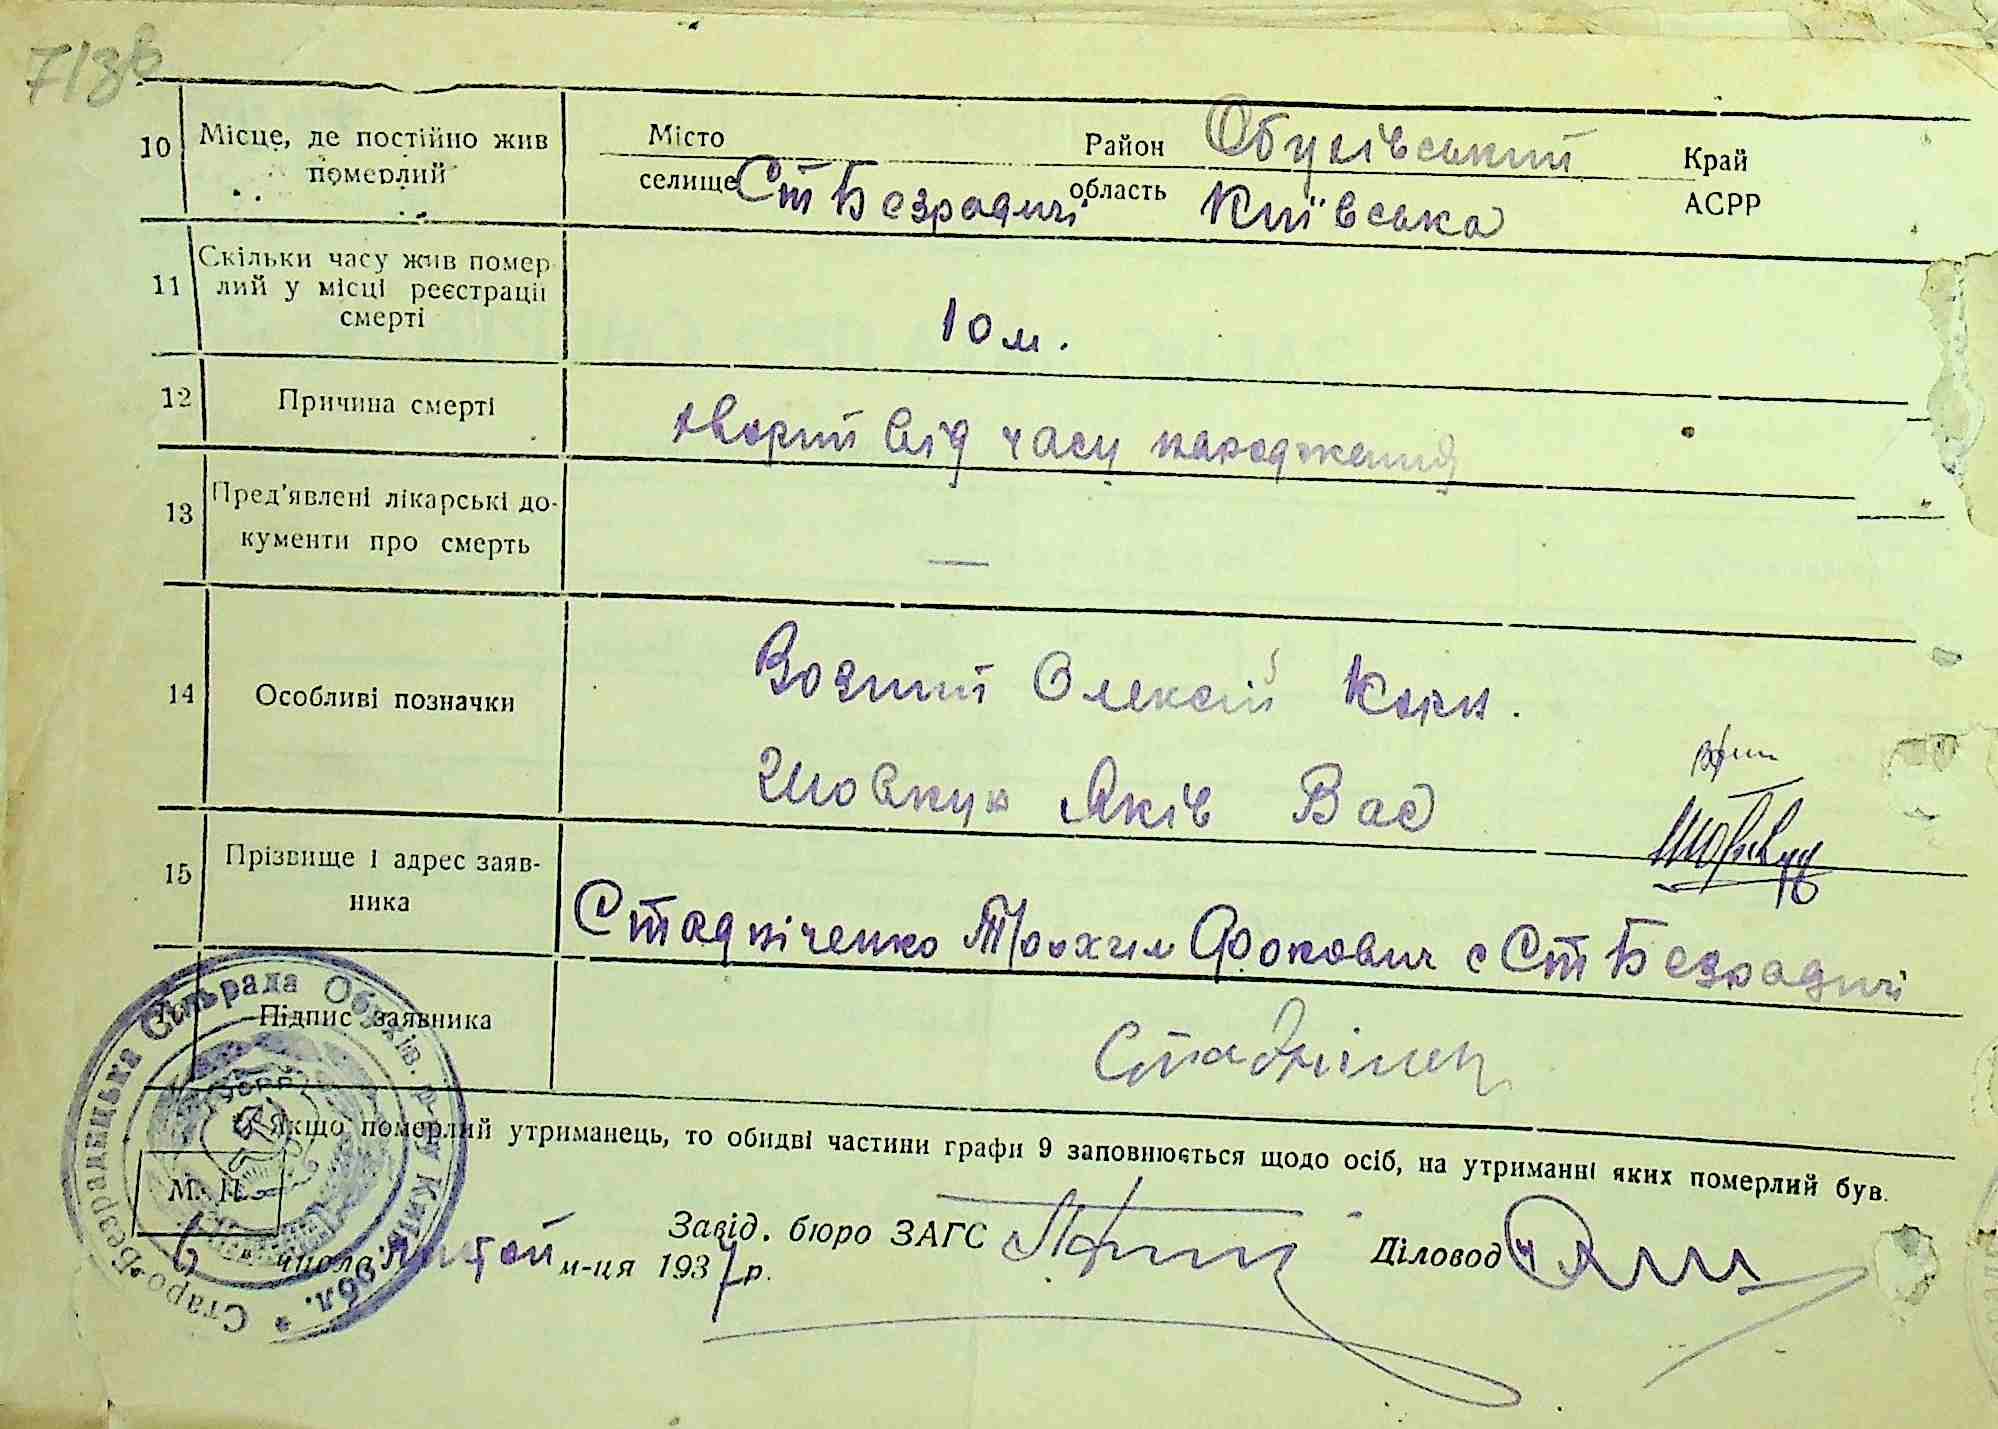 718б
10 Місце, де постійно жив Місто Район Обухівський Край
померлий селище Ст Безрадичі область Київська АСРР
11 Скільки часу жив помер
лий у місці реєстрації
смерті
10 м.
12 Причина смерті хворий від часу народження
13 Пред'явлені лікарські до-
кументи про смерть
—
14 Особливі позначки
Возний Олексій Корн.
Шовкун Яків Вас
15 Прізвище і адрес заяв-
ника
Стадніченко Трохим Фокович с Ст Безрадичі
Підпис заявника
Якщо померлий утриманець, то обидві частини графи 9 заповнюється щодо осіб, на утриманні яких померлий був.
М. П.
Завід. бюро ЗАГС Діловод
6 числа м-ця 1937 р.
Старо-Безрадицька Сільрада Обухів. р-ну Київ. обл. *
УСРР